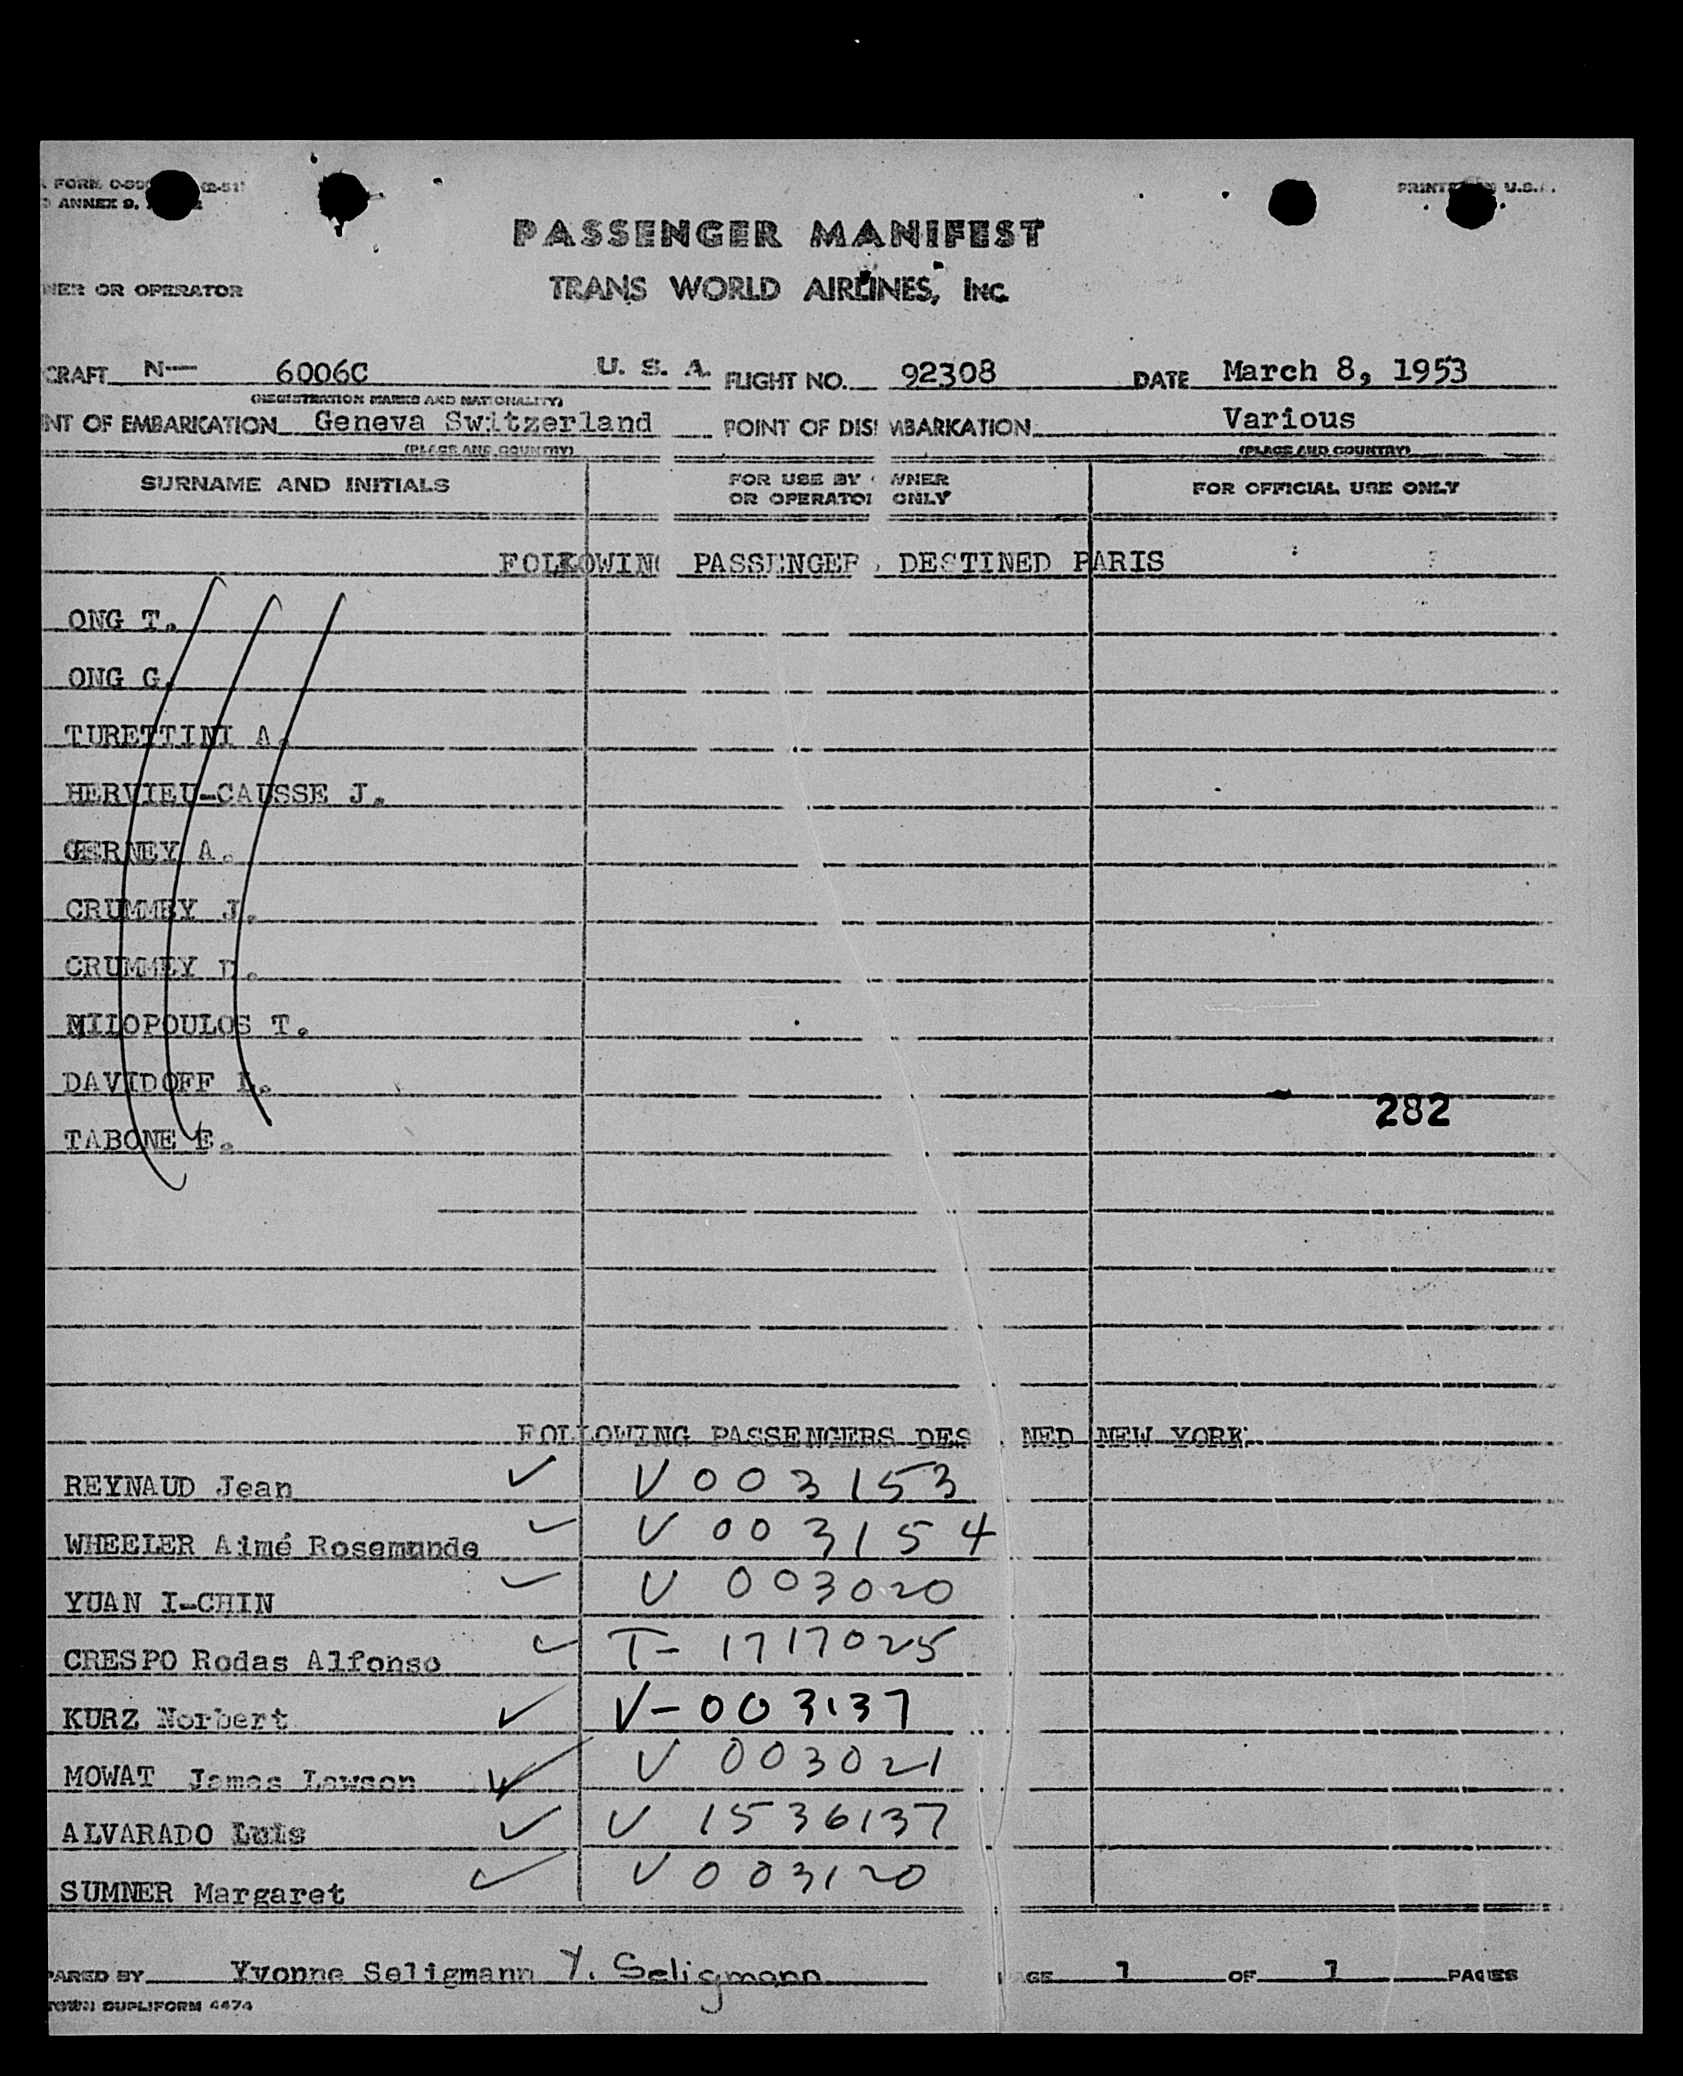 FORM
ANNEX 9,
PRINTED IN U.S.A.
PASSENGER MANIFEST
TRANS WORLD AIRLINES, INC.
NER OR OPERATOR
CRAFT N— 6006C U. S. A. FLIGHT NO. 92308 DATE March 8, 1953
(REGISTRATION MARKS AND NATIONALITY)
NT OF EMBARKATION Geneva Switzerland POINT OF DISEMBARKATION Various
(PLACE AND COUNTRY) (PLACE AND COUNTRY)
SURNAME AND INITIALS FOR USE BY OWNER OR OPERATOR ONLY FOR OFFICIAL USE ONLY
FOLLOWING PASSENGERS DESTINED PARIS
ONG T.
ONG G.
TURETTINI A.
HERVIEU-CAUSSE J.
GERNEY A.
CRUMMEY J.
CRUMMEY D.
MILOPOULOS T.
DAVIDOFF L.
282
TABONE E.
FOLLOWING PASSENGERS DESTINED NEW YORK
REYNAUD Jean ✓ V 003153
WHEELER Aimé Rosemunde ✓ V 003154
YUAN I-CHIN ✓ V 003020
CRESPO Rodas Alfonso ✓ T- 1717025
KURZ Norbert ✓ V-003137
MOWAT James Lawson ✓ V 003021
ALVARADO Luis ✓ V 1536137
SUMNER Margaret ✓ V 003120
PARED BY Yvonne Seligmann Y. Seligmann PAGE 1 OF 1 PAGES
TOWN DUPLIFORM 4474